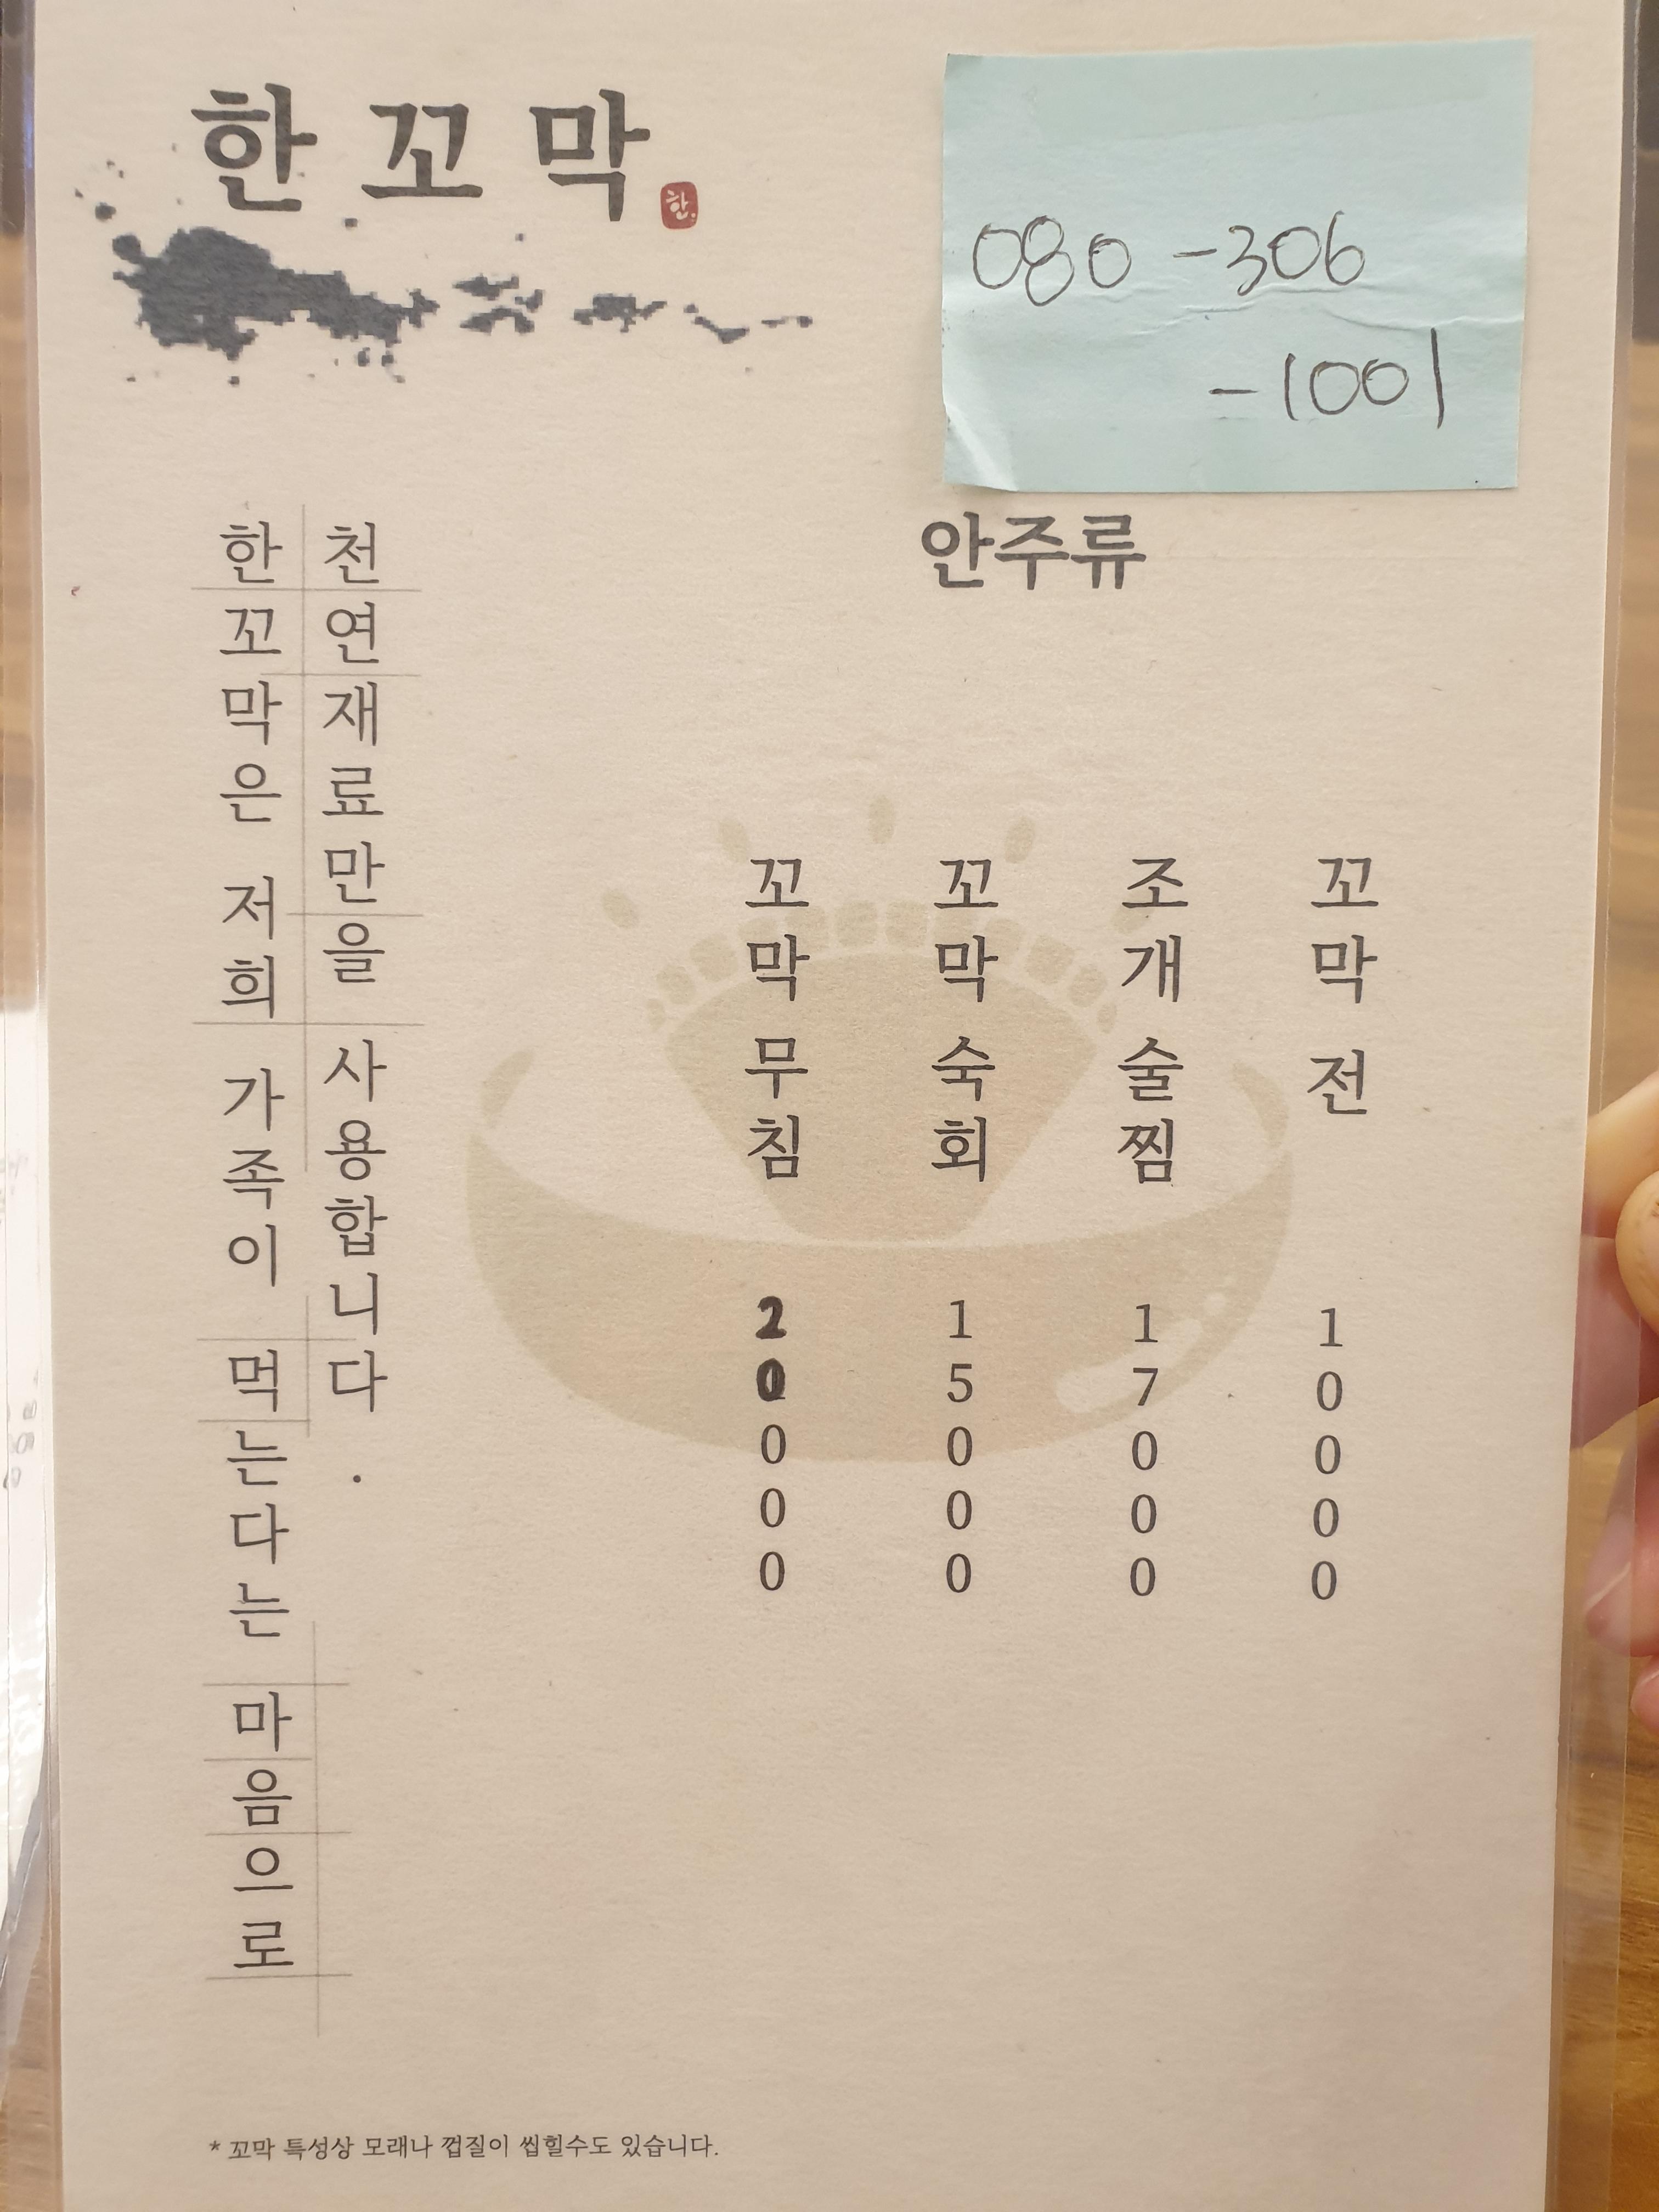 한꼬막
한.
080-306
-1001
한꼬막은 저희 가족이 먹는다는 마음으로
천연재료만을 사용합니다.
안주류
꼬막무침 20000
꼬막숙회 15000
조개술찜 17000
꼬막전 10000
* 꼬막 특성상 모래나 껍질이 씹힐수도 있습니다.